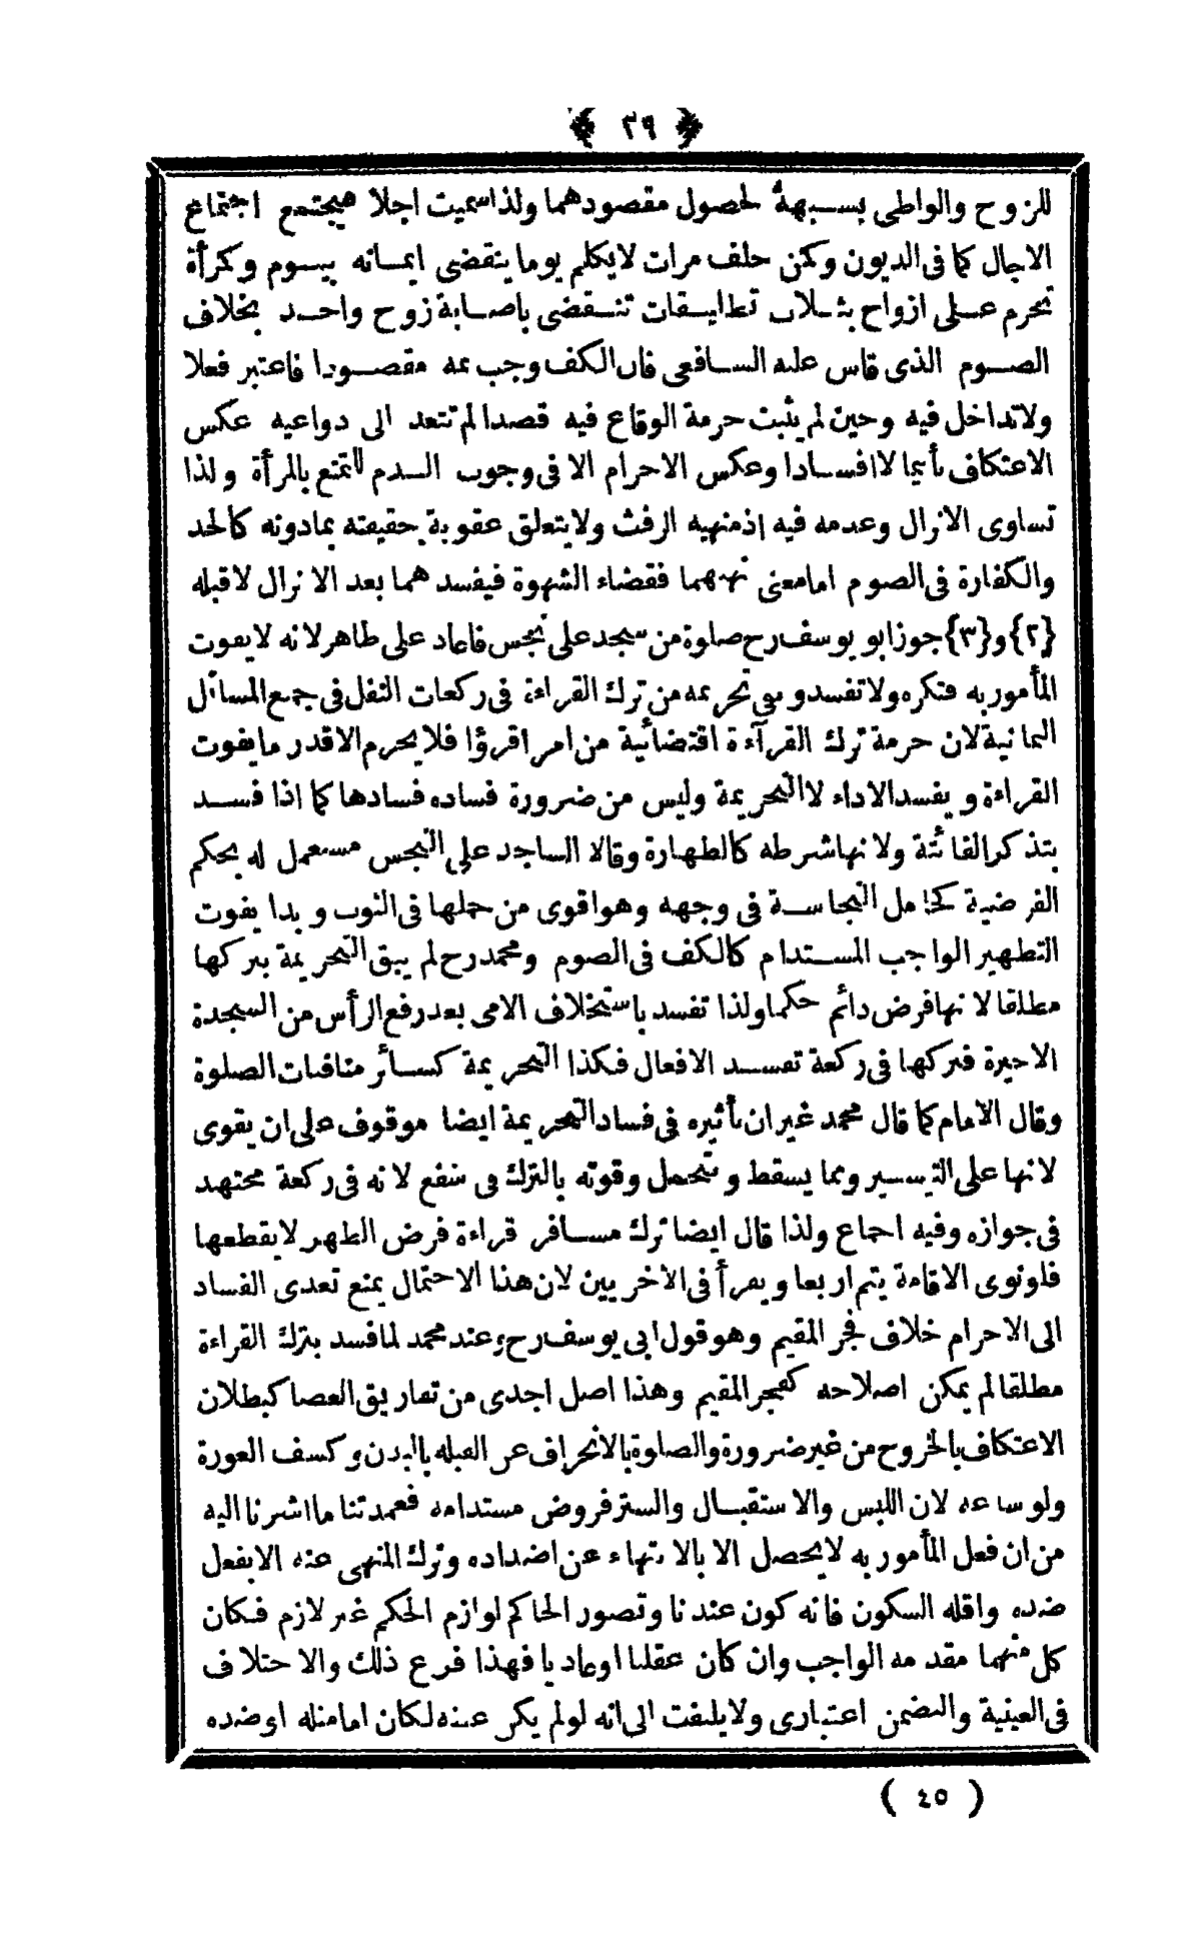 ﴿ ٣٩ ﴾
للزوج والواطى بشبهة لحصول مقصودهما ولذا سميت اجلا فيجتمع اجتماع
الاجال كما فى الديون وكمن حلف مرات لايكلم يوما ينقضى ايمانه بيوم وكمرأة
تحرم على ازواج بثلاث تطليقات تنقضى باصابة زوج واحد بخلاف
الصوم الذى قاس عليه الشافعى فان الكف وجب ثمه مقصودا فاعتبر فعلا
ولاتداخل فيه وحين لم يثبت حرمة الوقاع فيه قصدا لم تتعد الى دواعيه عكس
الاعتكاف تأثيما لا افسادا وعكس الاحرام الا فى وجوب الدم للتمتع بالمرأة ولذا
تساوى الانزال وعدمه فيه اذ منهيه الرفث ولايتعلق عقوبة حقيقته بمادونه كالحد
والكفارة فى الصوم اما معنى نهيهما فقضاء الشهوة فيفسدهما بعد الانزال لاقبله
{٢} و{٣} جوز ابو يوسف رح صلوة من سجد على نجس فاعاد على طاهر لانه لا يفوت
المأمور به فتكره ولاتفسد وبقى تحريمه من ترك القراءة فى ركعات النفل فى جميع المسائل
الثمانية لان حرمة ترك القرآءة اقتضائية من امر اقرؤا فلا يحرم الا قدر ما يفوت
القراءة ويفسد الاداء لا التحريمة وليس من ضرورة فساده فسادها كما اذا فسد
بتذكر الفائتة ولانها شرطه كالطهارة وقالا الساجد على النجس مستعمل له بحكم
الفرضية كحامل النجاسة فى وجهه وهو اقوى من حملها فى الثوب وبذا يفوت
التطهير الواجب المستدام كالكف فى الصوم ومحمد رح لم يبق التحريمة بتركها
مطلقا لانها فرض دائم حكما ولذا تفسد باستخلاف الامى بعد رفع الرأس من السجدة
الاخيرة فتركها فى ركعة تفسد الافعال فكذا التحريمة كسائر منافيات الصلوة
وقال الامام كما قال محمد غير ان تأثيره فى فساد التحريمة ايضا موقوف على ان يقوى
لانها على التيسير ومما يسقط ويتحمل وقوته بالترك فى شفع لانه فى ركعة مجتهد
فى جوازه وفيه اجماع ولذا قال ايضا ترك مسافر قراءة فرض الظهر لايقطعها
فلو نوى الاقامة يتم اربعا ويقرأ فى الاخريين لان هذا الاحتمال يمنع تعدى الفساد
الى الاحرام خلاف فجر المقيم وهو قول ابى يوسف رح وعند محمد لما فسد بترك القراءة
مطلقا لم يمكن اصلاحه كفجر المقيم وهذا اصل اجدى من تفاريق العصا كبطلان
الاعتكاف بالخروج من غير ضرورة والصلوة بالانحراف عن القبله بالبدن وكشف العورة
ولو ساعة لان اللبس والاستقبال والستر فروض مستدامه فعمدتنا ما اشرنا اليه
من ان فعل المأمور به لايحصل الا بالانتهاء عن اضداده وترك المنهى عنه الا بفعل
ضده واقله السكون فانه كون عندنا وتصور الحاكم لوازم الحكم غير لازم فكان
كل منهما مقدمه الواجب وان كان عقليا او عاديا فهذا فرع ذلك والاختلاف
فى العينية والتضمن اعتبارى ولايلتفت الى انه لو لم يكن عينه لكان اما مثله او ضده
( ٤٥ )